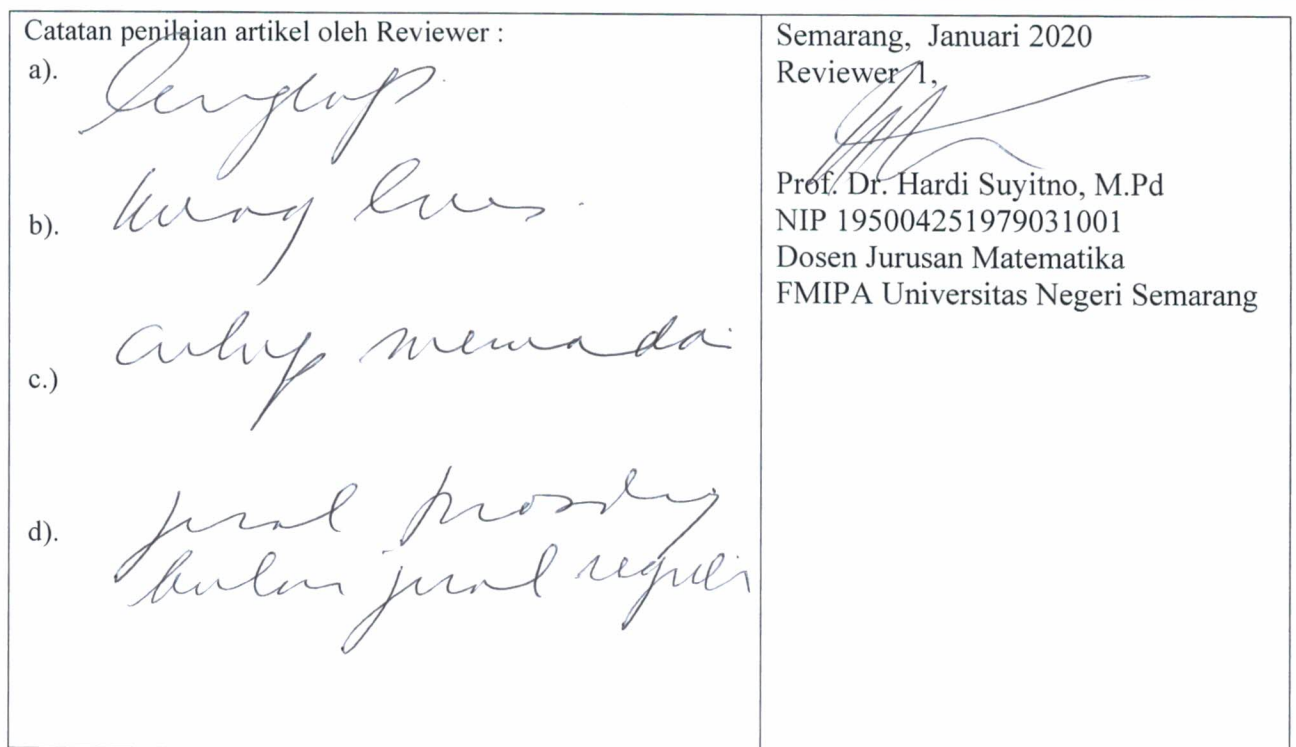 Catatan penilaian artikel oleh Reviewer :
a). lengkap.
b). kurang luas.
c.) cukup memadai
d). jurnal prosiding
bukan jurnal reguler
Semarang, Januari 2020
Reviewer 1,
Prof. Dr. Hardi Suyitno, M.Pd
NIP 195004251979031001
Dosen Jurusan Matematika
FMIPA Universitas Negeri Semarang